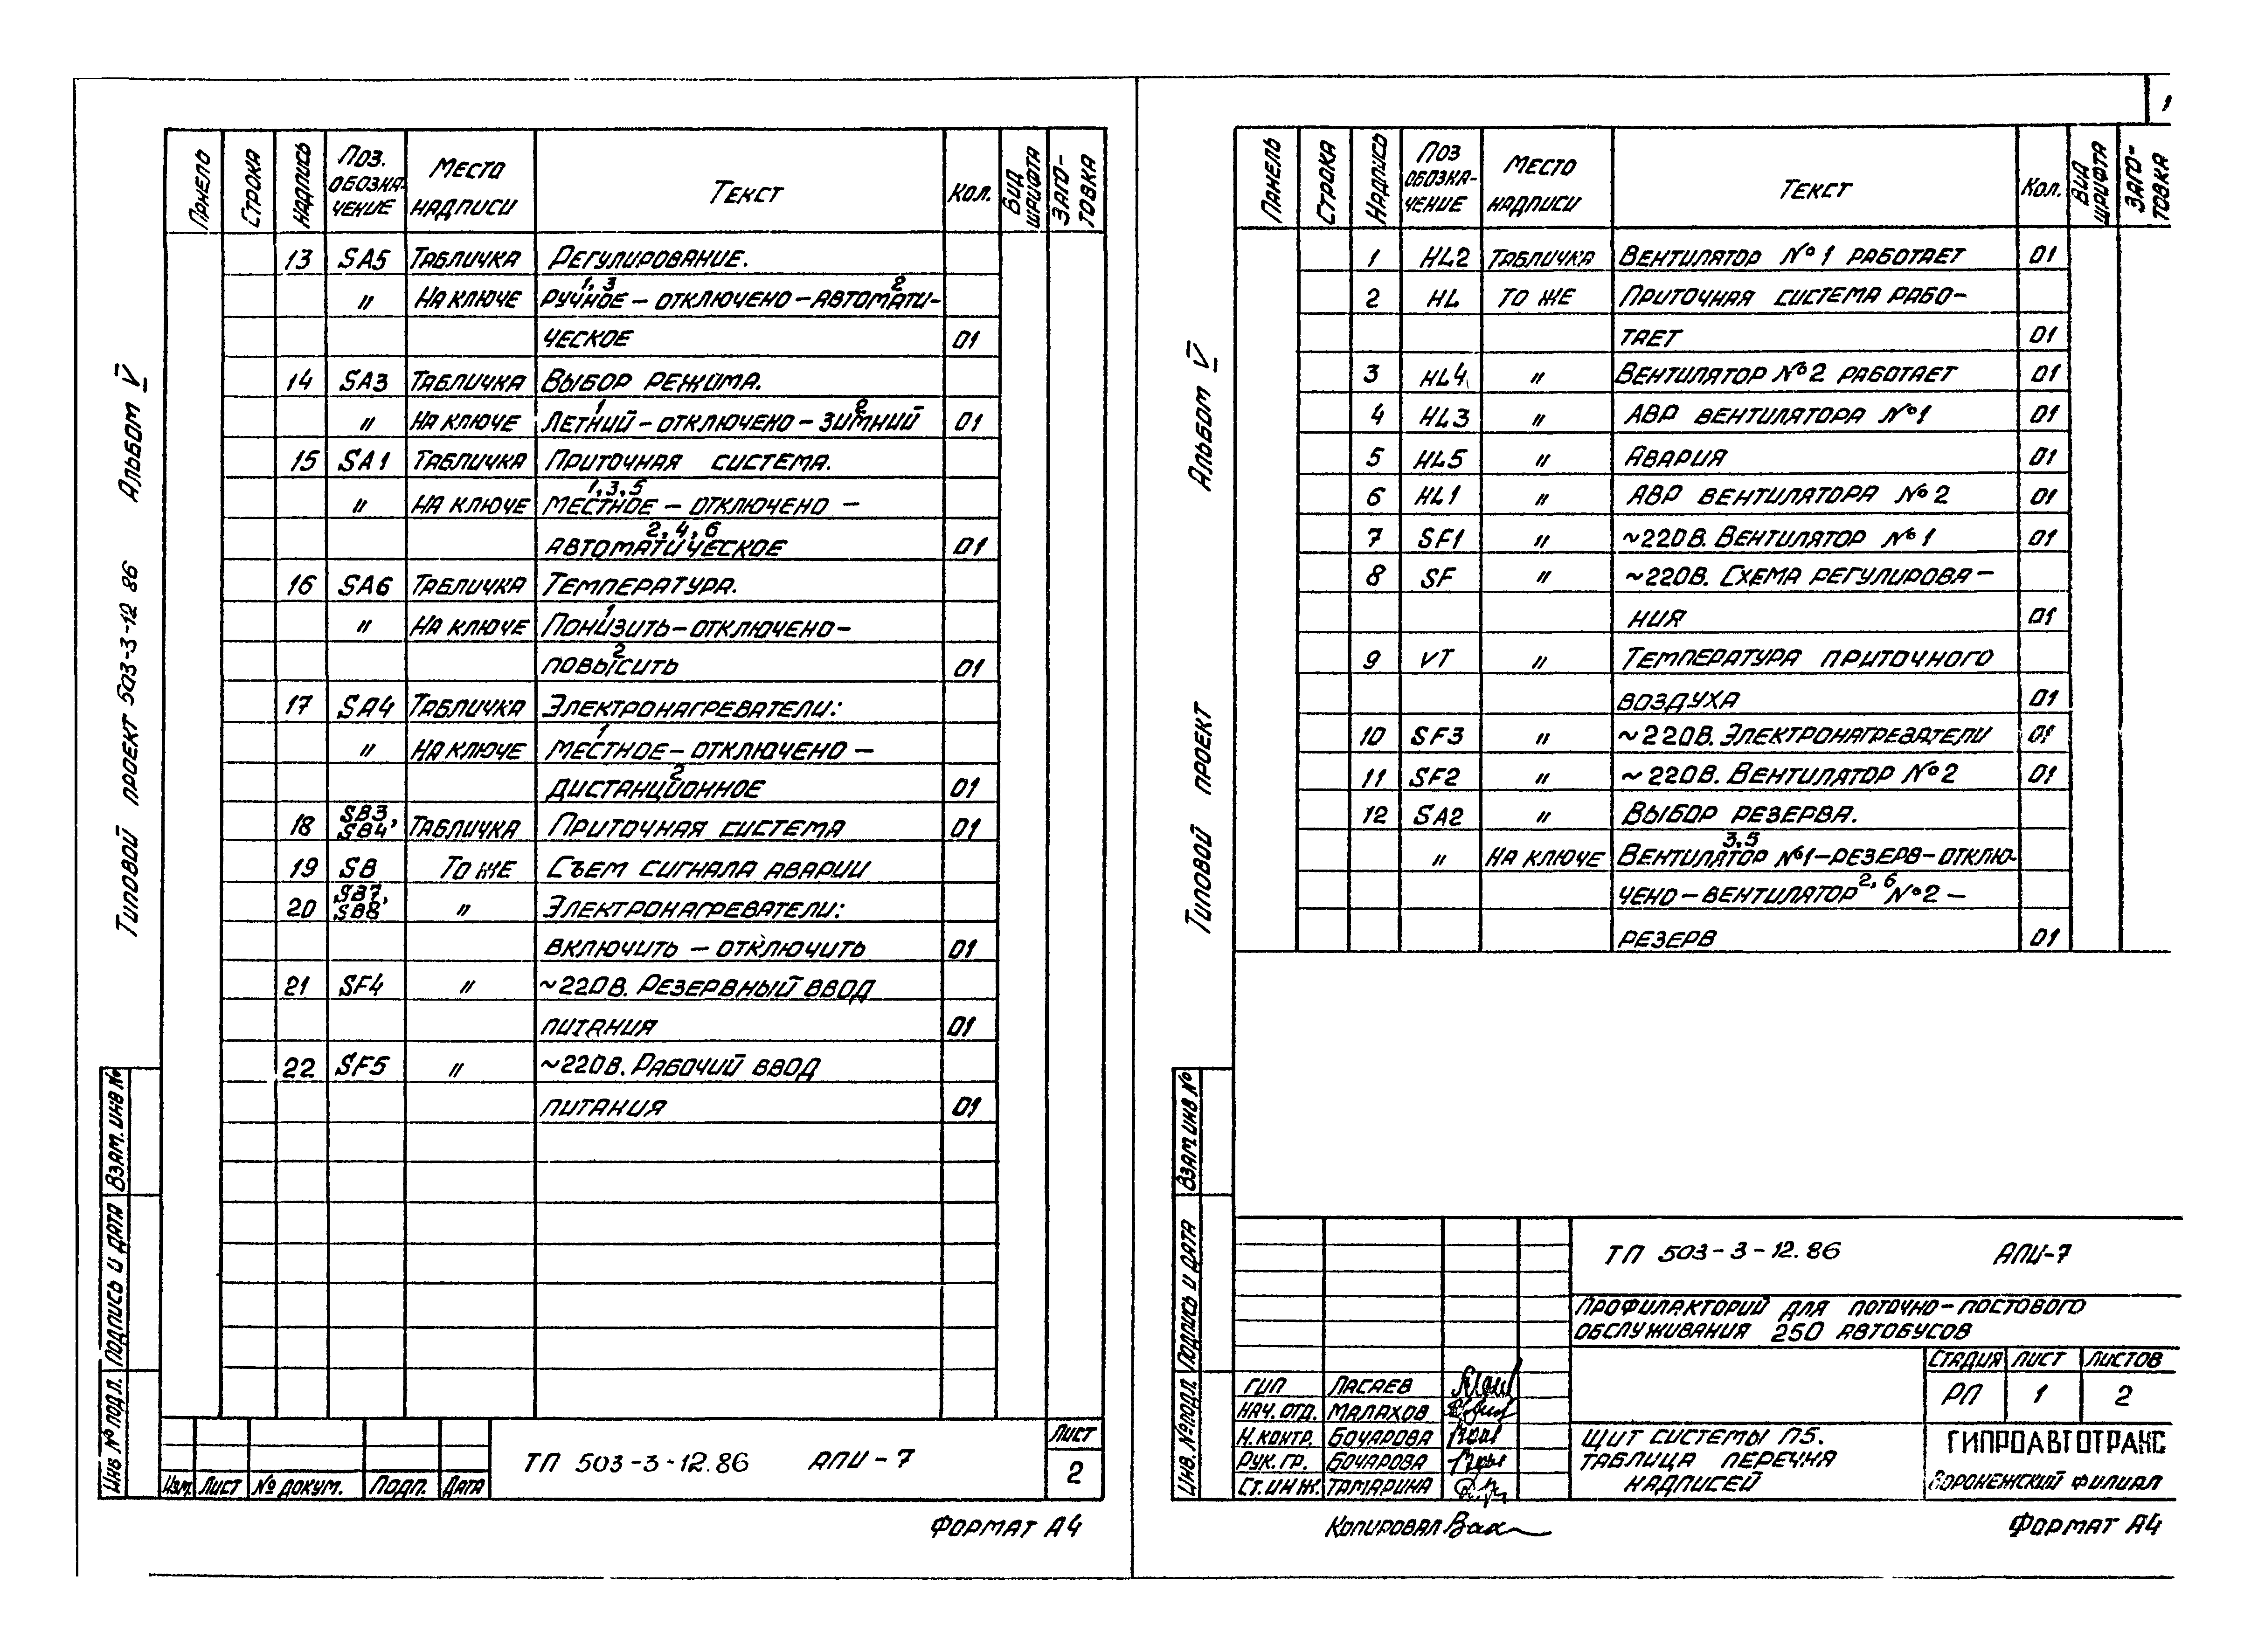 Типовой проект 503-3-12 86 Альбом V
Панель | Строка | Надпись | Поз. обозначение | Место надписи | Текст | Кол. | Вид шрифта | Заготовка
13 SA5 Табличка Регулирование.
" На ключе Ручное – отключено – автомати-
1, 3 2
ческое 01
14 SA3 Табличка Выбор режима.
" На ключе Летний – отключено – зимний 01
1 2
15 SA1 Табличка Приточная система.
" На ключе Местное – отключено –
1, 3, 5
автоматическое 01
2, 4, 6
16 SA6 Табличка Температура.
" На ключе Понизить – отключено –
1
повысить 01
2
17 SA4 Табличка Электронагреватели:
" На ключе Местное – отключено –
1
дистанционное 01
2
18 SB3, SB4 Табличка Приточная система 01
19 SB То же Съем сигнала аварии
20 SB7, SB8 " Электронагреватели:
включить – отключить 01
21 SF4 " ~220В. Резервный ввод
питания 01
22 SF5 " ~220В. Рабочий ввод
питания 01
Инв № подл. Подпись и дата Взам. инв №
Изм. Лист № докум. Подп. Дата
ТП 503-3-12.86 АПИ-7
Лист
2
Формат А4
1
Типовой проект Альбом V
Панель | Строка | Надпись | Поз обозначение | Место надписи | Текст | Кол. | Вид шрифта | Заготовка
1 HL2 Табличка Вентилятор №1 работает 01
2 HL То же Приточная система рабо-
тает 01
3 HL4 " Вентилятор №2 работает 01
4 HL3 " АВР вентилятора №1 01
5 HL5 " Авария 01
6 HL1 " АВР вентилятора №2 01
7 SF1 " ~220В. Вентилятор №1 01
8 SF " ~220В. Схема регулирова-
ния 01
9 VT " Температура приточного
воздуха 01
10 SF3 " ~220В. Электронагреватели 01
11 SF2 " ~220В. Вентилятор №2 01
12 SA2 " Выбор резерва.
" На ключе Вентилятор №1–резерв–отклю-
3, 5
чено – вентилятор №2 –
2, 6
резерв 01
Инв. № подл. Подпись и дата Взам. инв №
ТП 503-3-12.86 АПИ-7
Профилакторий для поточно-постового
обслуживания 250 автобусов
Стадия Лист Листов
РП 1 2
ГИП Ласаев
Нач. отд. Малахов
Н. контр. Бочарова
Рук. гр. Бочарова
Ст. инж. Тамарина
Щит системы П5.
Таблица перечня
надписей
ГИПРОАВТОТРАНС
Воронежский филиал
Копировал
Формат А4